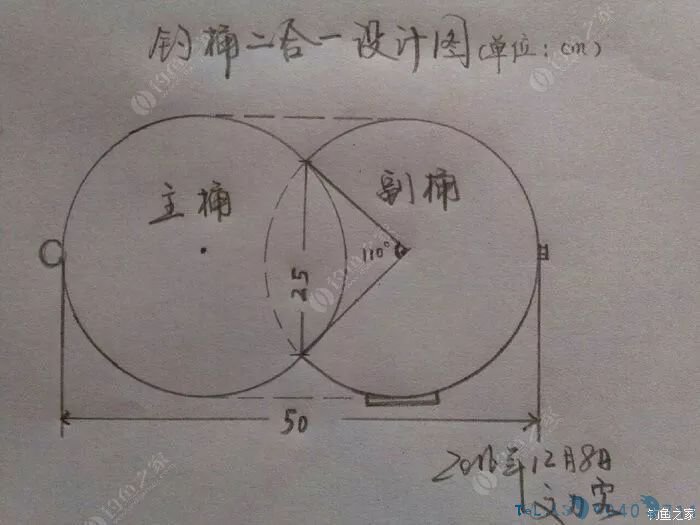 钓桶二合一设计图(单位:cm)
主桶
副桶
110°
25
50
2016年12月8日
钓鱼之家